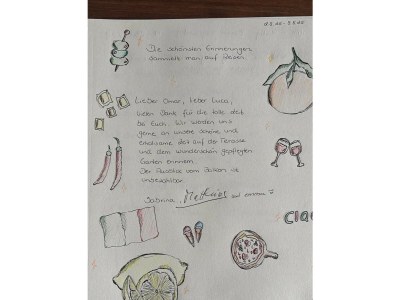 Die schönsten Erinnerungen
sammelt man auf Reisen.
Lieber Omar, lieber Luca,
vielen Dank für die tolle Zeit
bei Euch. Wir werden uns
gerne an unsere schöne und
erholsame Zeit auf der Terrasse
und dem wunderschön gepflegten
Garten erinnern.
Der Ausblick vom Balkon ist
unbezahlbar.
Sabrina, Matthias
Ciao